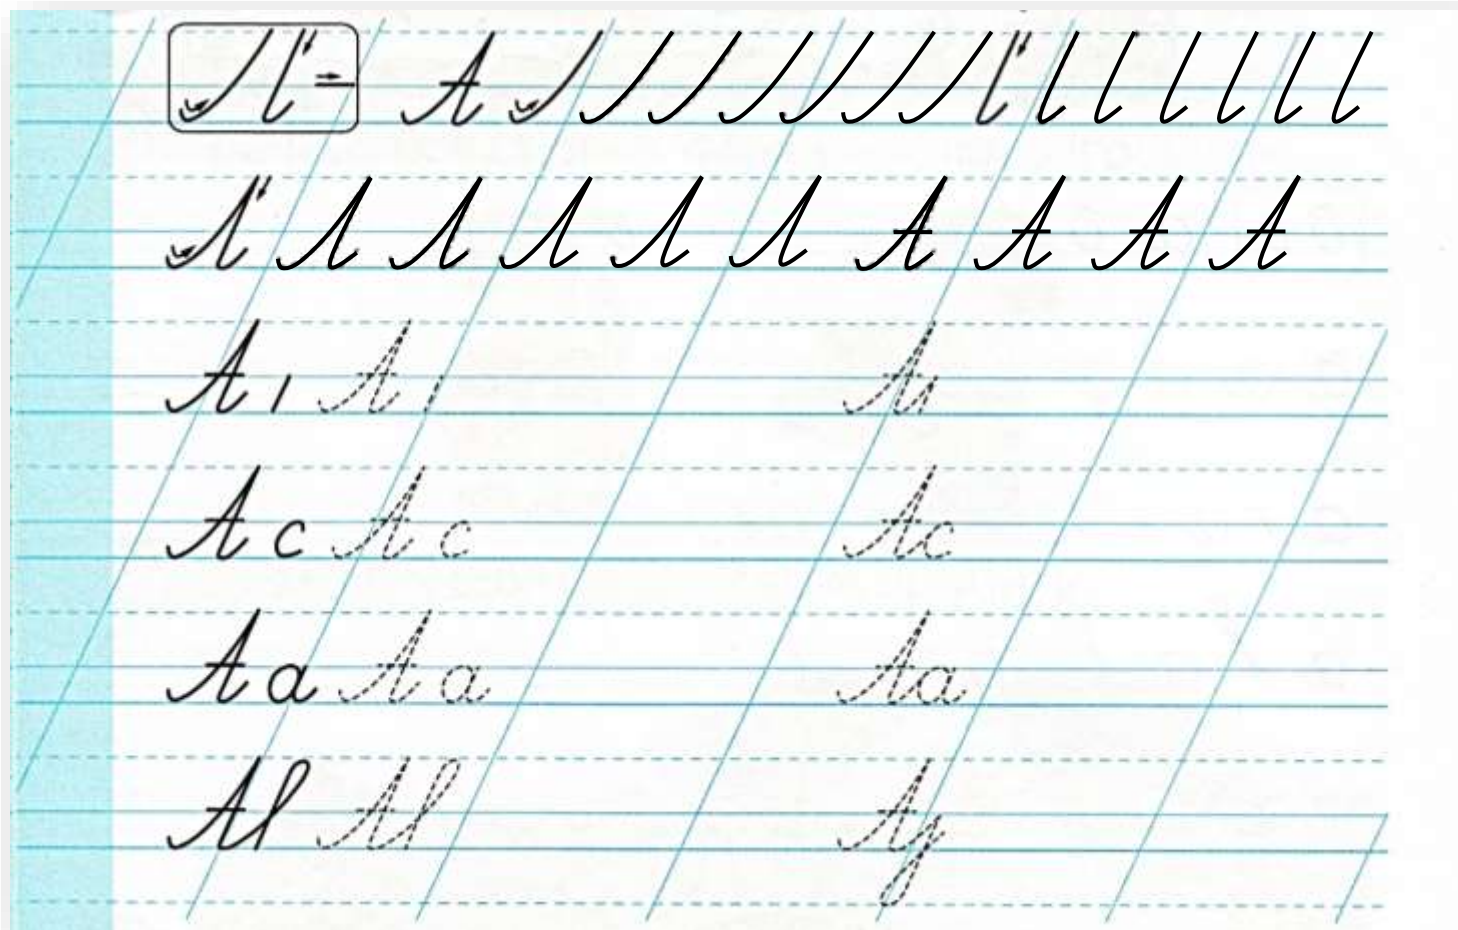 А
А А А А
А А А
А с А с Ас
А а А а Аа
А А Ау